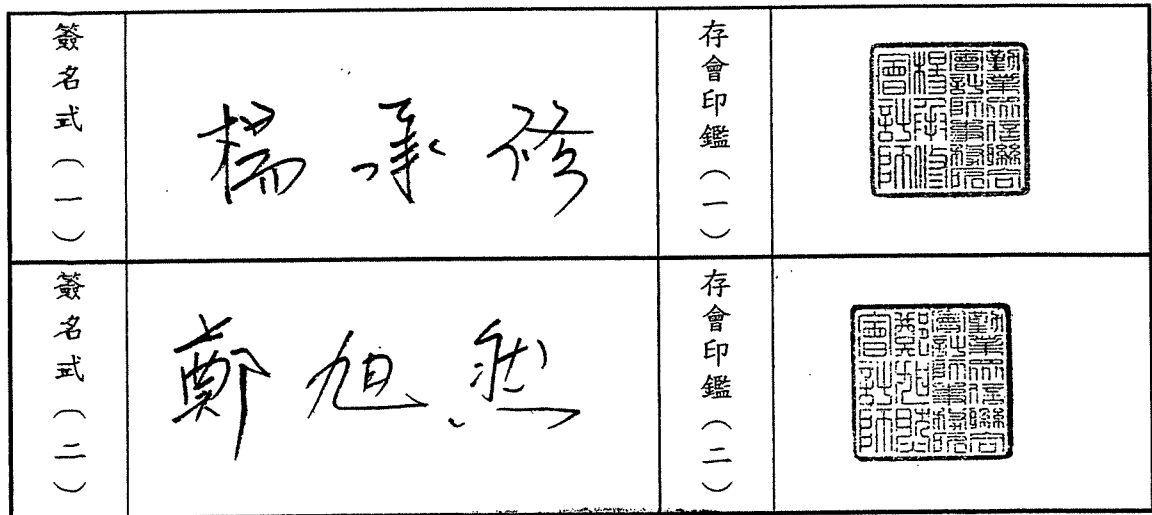 簽名式(一)
楊承修
存會印鑑(一)
勤業眾信聯合
會計師事務所
楊承修
會計師
簽名式(二)
鄭旭然
存會印鑑(二)
勤業眾信聯合
會計師事務所
鄭旭然
會計師